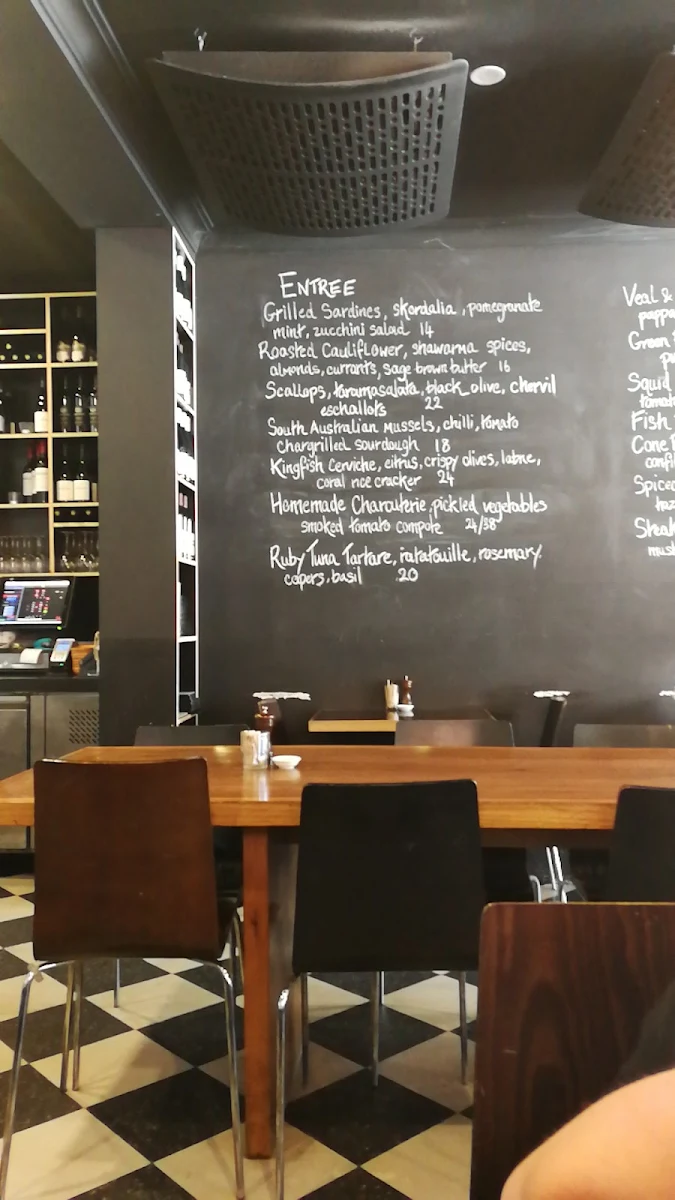 ENTREE
Grilled Sardines, skordalia, pomegranate
mint, zucchini salad 14
Roasted Cauliflower, shawarma spices,
almonds, currants, sage brown butter 16
Scallops, taramasalata, black olive, chervil
eschallots 22
South Australian mussels, chilli, tomato
Chargrilled sourdough 18
Kingfish Cerviche, citrus, crispy olives, labne,
coral rice cracker 24
Homemade Charcuterie, pickled vegetables
smoked tomato compote 24/38
Ruby Tuna Tartare, ratatouille, rosemary
capers, basil 20
Veal &
pappa
Green
Squid
tomat
Fish
Cone
confi
Spiced
haz
Steak
must